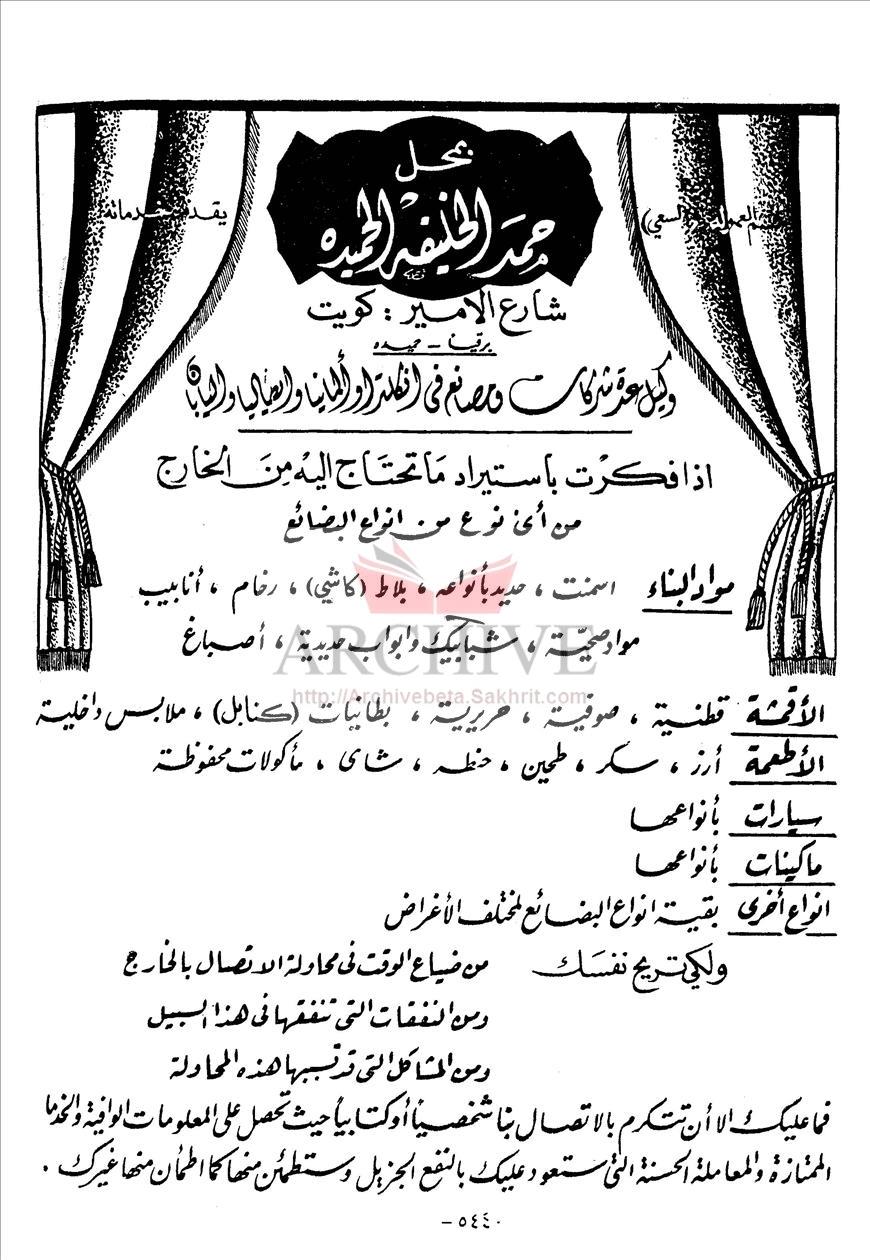 محل
حمد الخليفه الحميده
قسم العمولة (السعي)
يقدم خدماته
شارع الامير : كويت
برقيا - حميده
وكيل عدة شركات ومصانع في انكلترا وألمانيا وايطاليا واليابان
اذا فكرت باستيراد ما تحتاج اليه من الخارج
من أي نوع من انواع البضائع
مواد البناء اسمنت ، حديد بأنواعه ، بلاط (كاشي) ، رخام ، أنابيب
مواد صحيّة ، شبابيك وابواب حديدية ، أصباغ
ARCHIVE
http://Archivebeta.Sakhrit.com
الأقمشة قطنية ، صوفية ، حريرية ، بطانيات (كنابل) ، ملابس داخلية
الأطعمة أرز ، سكر ، طحين ، حنطه ، شاى ، مأكولات محفوظة
سيارات بأنواعها
ماكينات بأنواعها
انواع أخرى بقية انواع البضائع لمختلف الأغراض
ولكي تريح نفسك من ضياع الوقت فى محاولة الاتصال بالخارج
ومن النفقات التى تنفقها فى هذا السبيل
ومن المشاكل التى قد تسببها هذه المحاولة
فما عليك الا أن تتكرم بالاتصال بنا شخصياً أو كتابياً حيث تحصل على المعلومات الوافية والخدما
الممتازة والمعاملة الحسنة التى ستعود عليك بالنفع الجزيل وستطمئن منها كما اطمأن منها غيرك .
٥٤٤٠ -